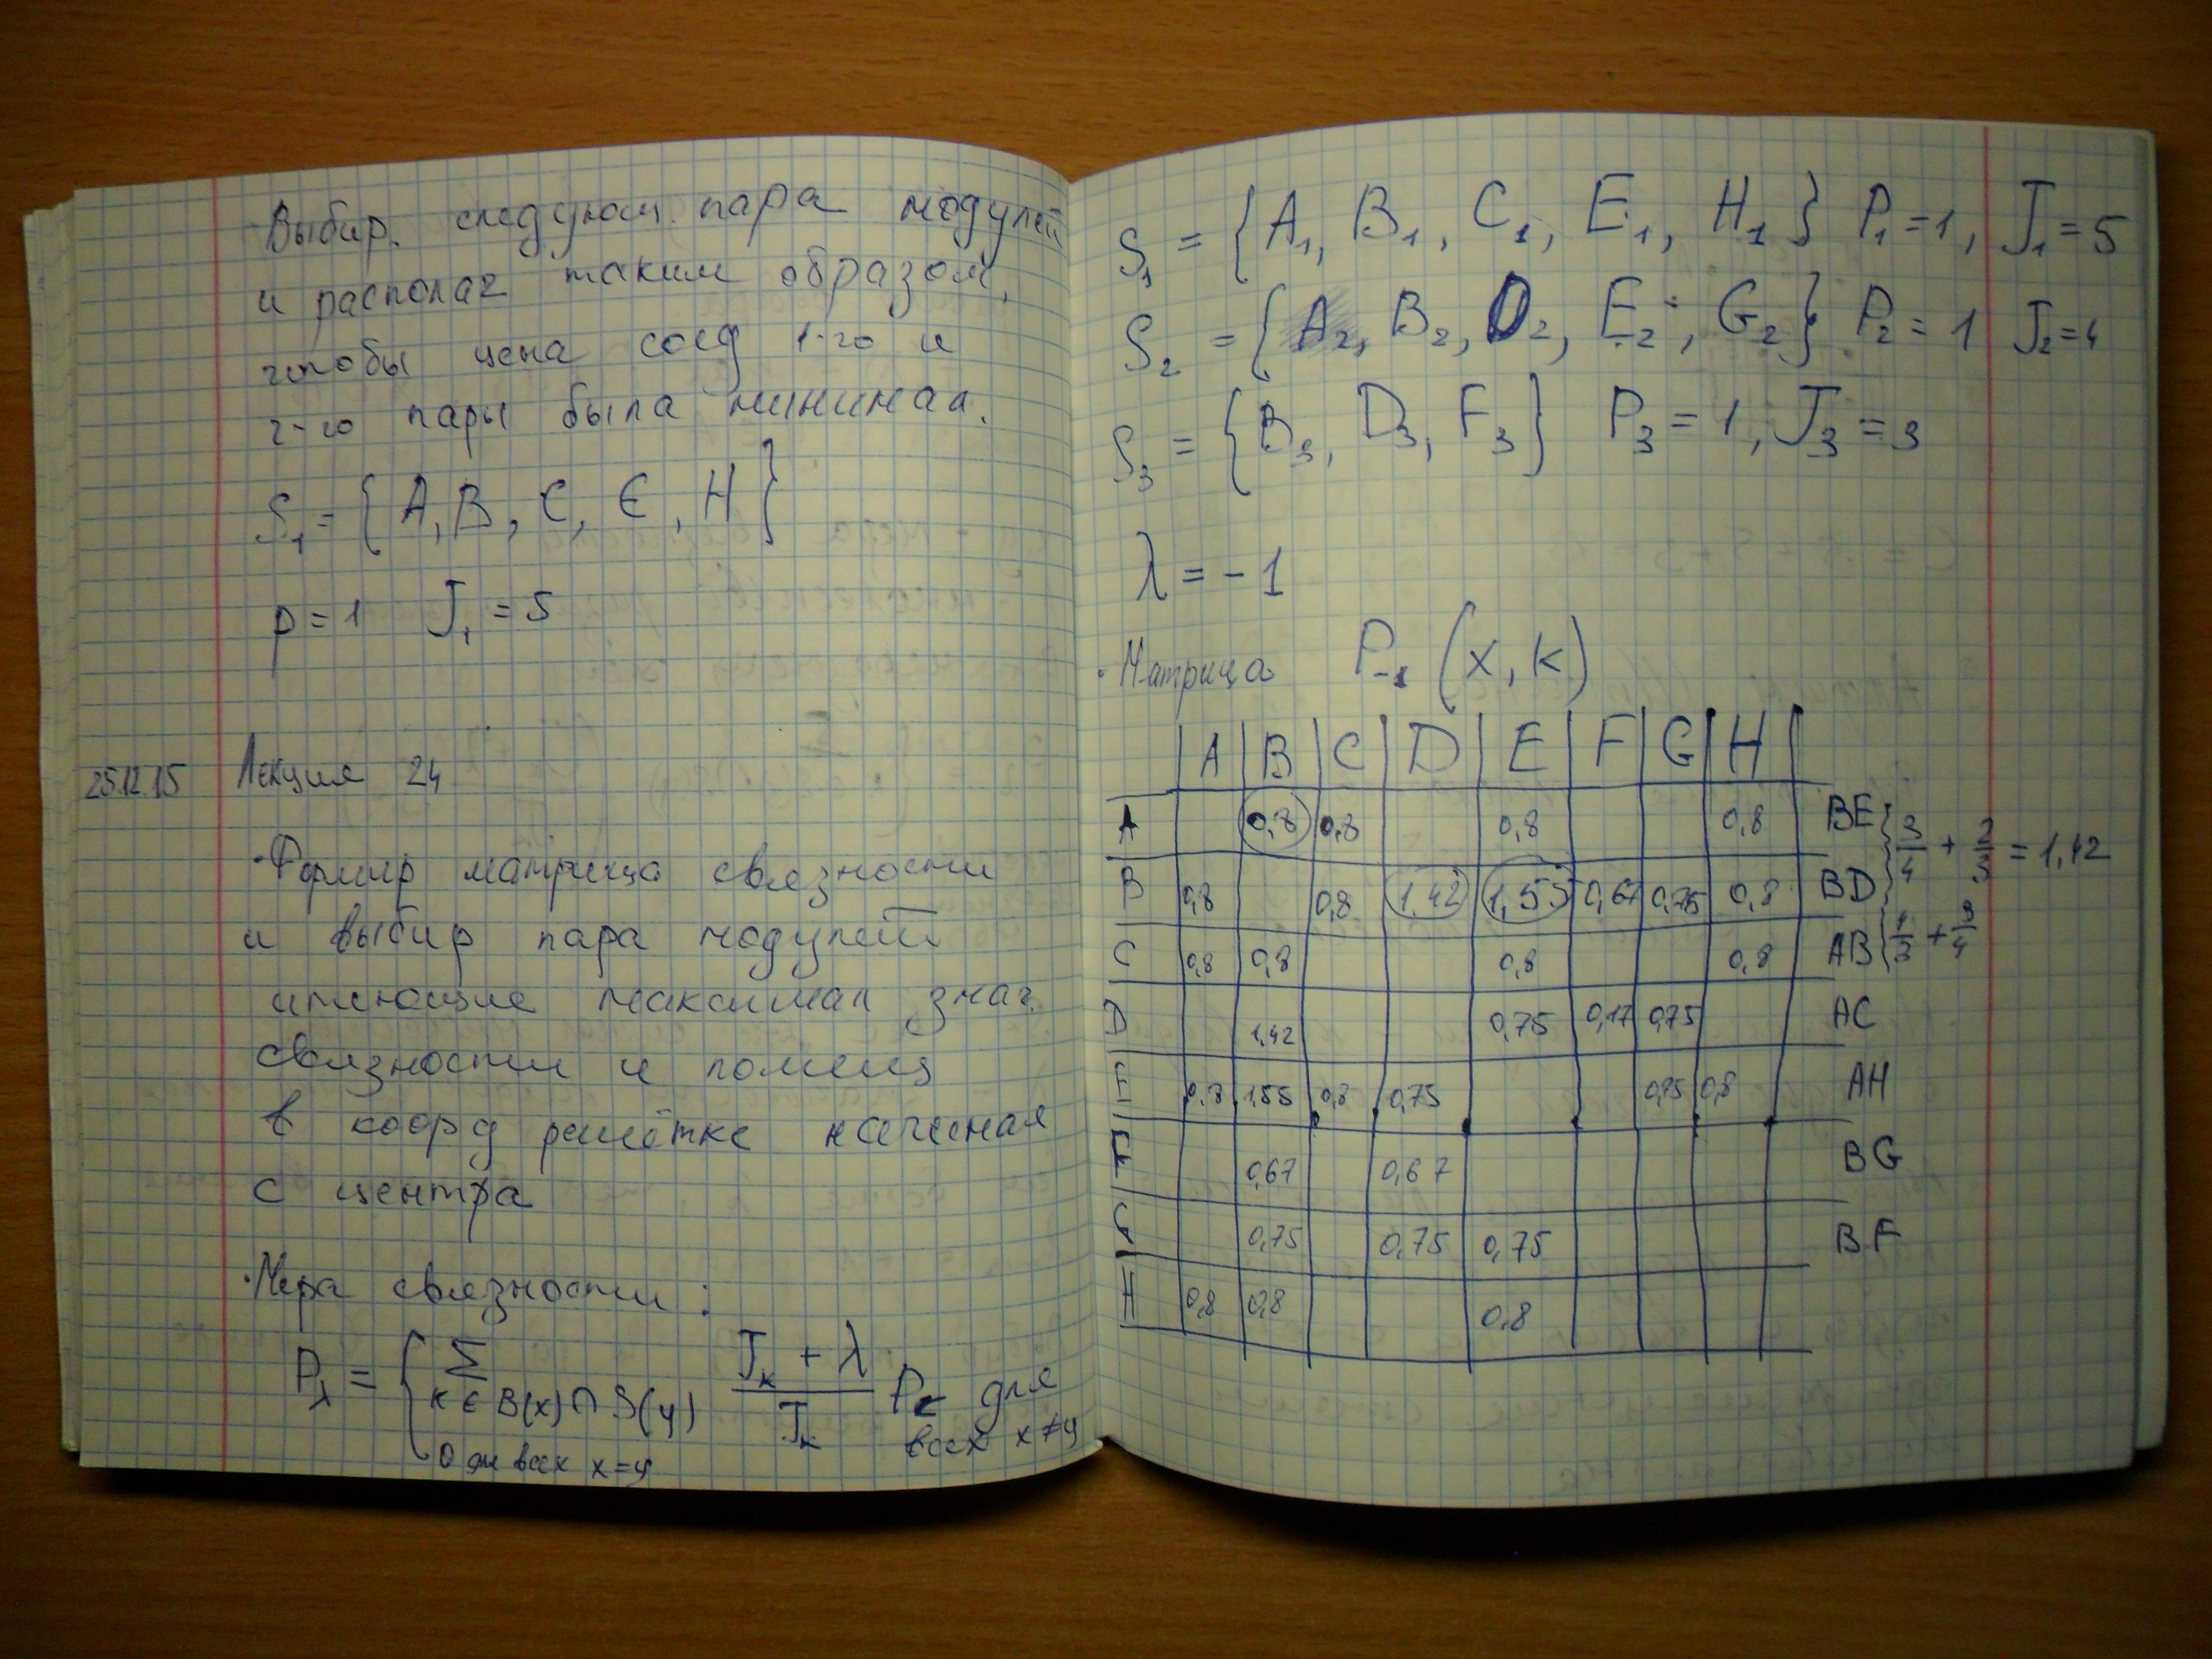 Выбир. следующ. пара модулей
и располаг таким образом,
чтобы цена соед 1-го и
2-го пары была минимал.
S₁ = { A, B, C, E, H }
p = 1 J₁ = 5
25.12.15 Лекция 24
· Формир матрица связности
и выбир пара модулей
имеющие максимал знач.
связности и помещ
в коорд решётке начиная
с центра
· Мера связности :
Pλ = { Σ K ∈ B(x) ∩ S(y) (Jₖ + λ) / Jₖ Pₖ для всех x ≠ y
0 для всех x = y
S₁ = { A₁, B₁, C₁, E₁, H₁ } P₁ = 1, J₁ = 5
S₂ = { A₂, B₂, D₂, E₂, G₂ } P₂ = 1 J₂ = 4
S₃ = { B₃, D₃, F₃ } P₃ = 1, J₃ = 3
λ = - 1
· Матрица P₋₁ (x, k)
A B C D E F G H
A 0,8 0,8 0,8 0,8 BE
B 0,8 0,8 1,42 1,55 0,67 0,75 0,8 BD } 3/4 + 2/3 = 1,42
C 0,8 0,8 0,8 0,8 AB
D 1,42 0,75 0,17 0,75 AC
E 0,8 1,55 0,8 0,75 0,75 0,8 AH
F 0,67 0,67 BG
G 0,75 0,75 0,75 BF
H 0,8 0,8 0,8